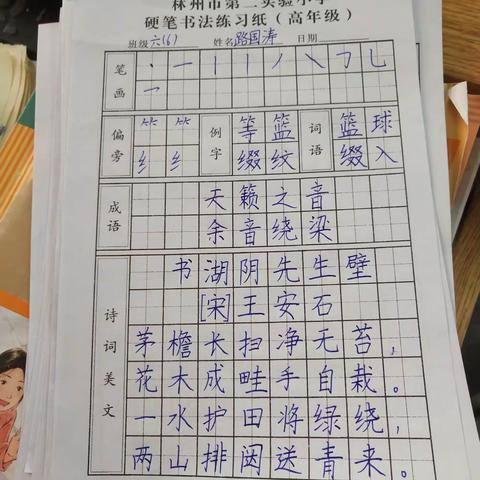 林州市第二实验小学
硬笔书法练习纸（高年级）
班级 六(6) 姓名 路国涛 日期
笔画 丶 一 丨 丨 丿 ㇏ ㇇ 乚
㇖
偏旁 ⺮ ⺮ 例字 等 篮 词语 篮 球
纟 纟 缀 纹 缀 入
成语 天籁之音
余音绕梁
诗词美文
书湖阴先生壁
[宋]王安石
茅檐长扫净无苔，
花木成畦手自栽。
一水护田将绿绕，
两山排闼送青来。